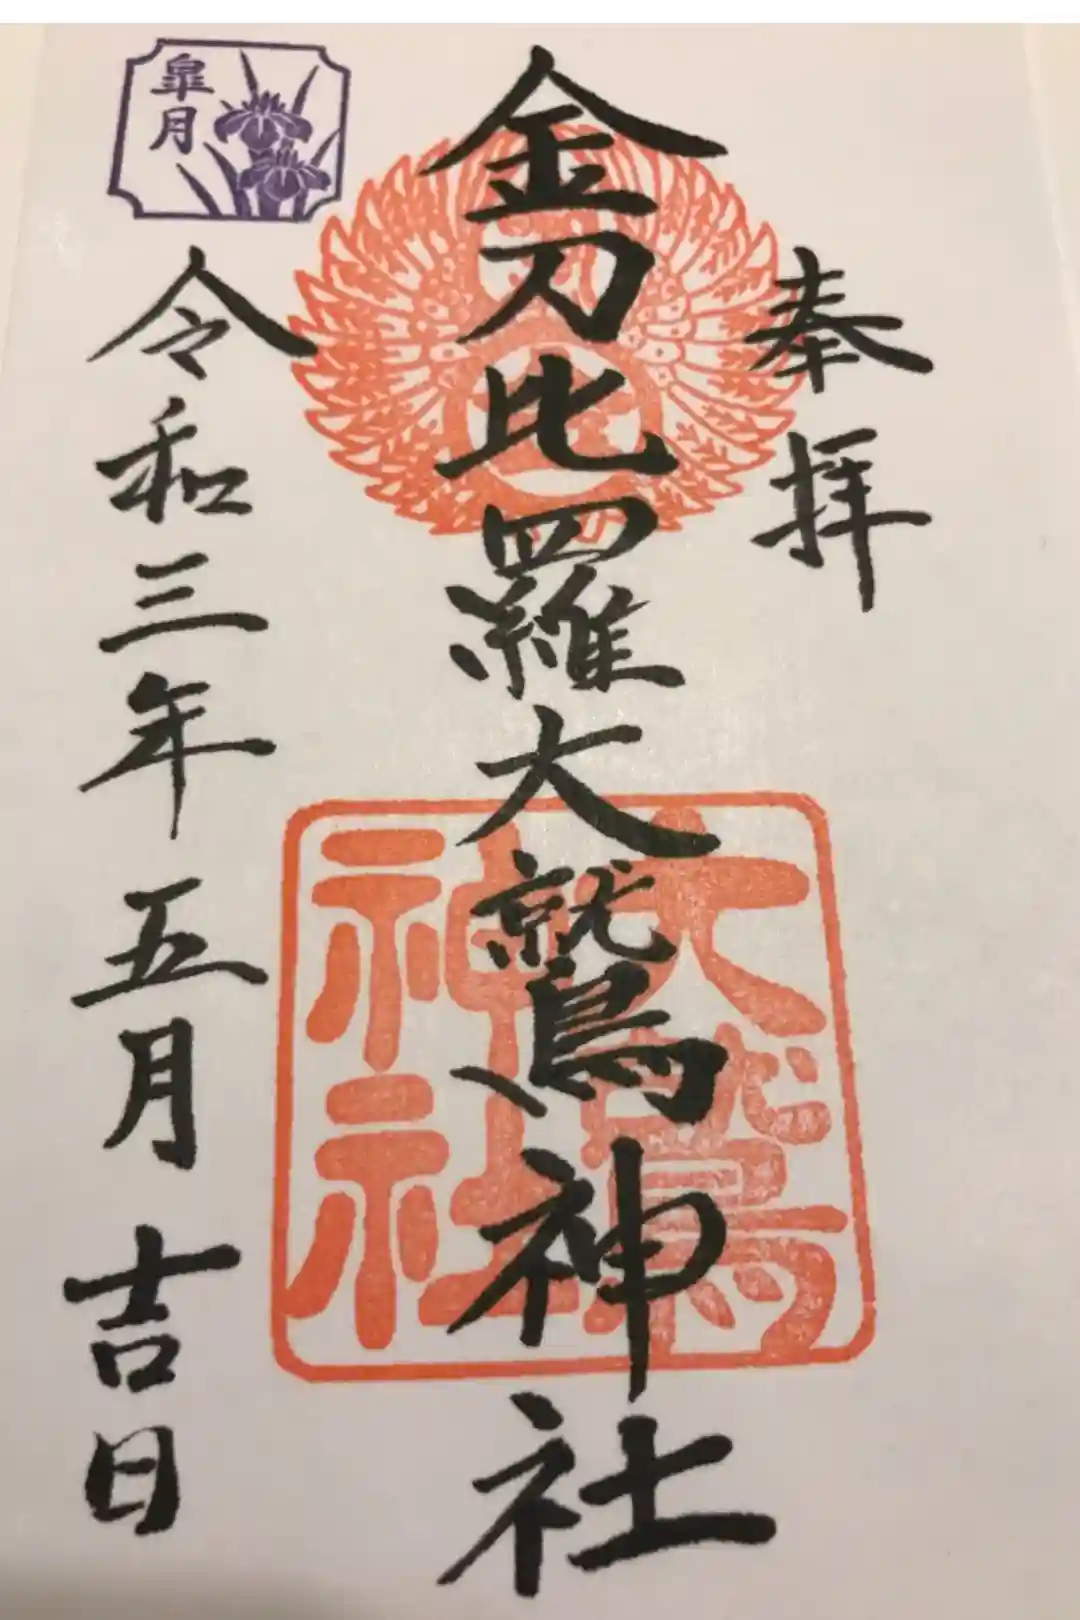 奉拝
金刀比羅大鷲神社
大鷲
神社
令和三年五月吉日
皐月